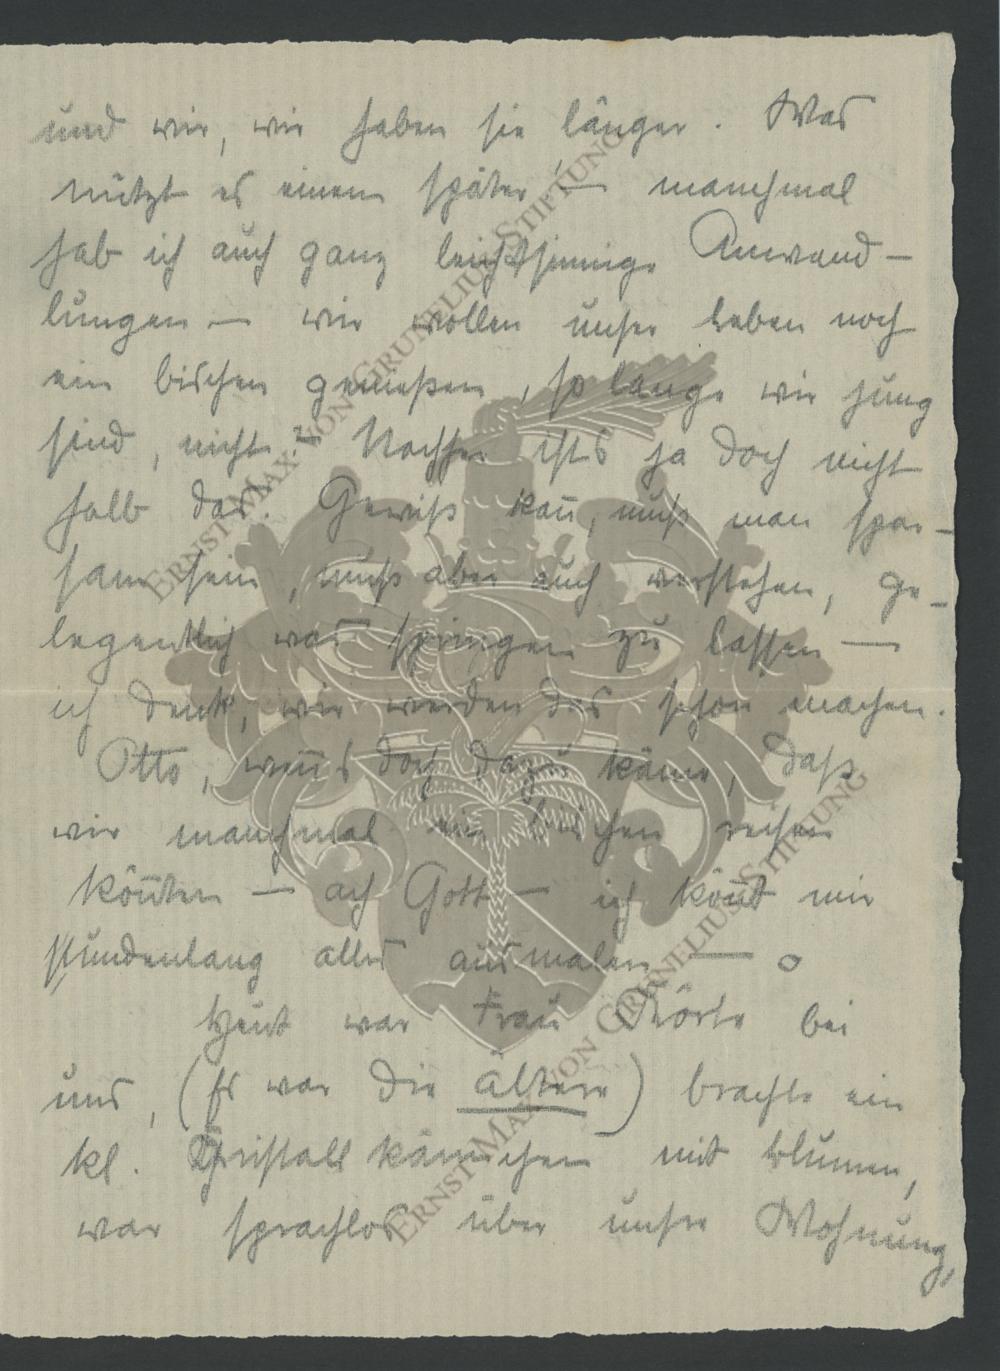 und wir, wir haben sie länger. Was
nützt es einem später, — manchmal
hab ich auch ganz leichtsinnige Anwand-
lungen — wir wollen unser Leben noch
ein bischen genießen, so lange wir jung
sind, nicht? Nachher ists ja doch nicht
halb das. Gewiß kañ, muß man spar-
sam sein, muß aber auch verstehen, ge-
legentlich was springen zu lassen —
ich denk, wir werden das schon machen.
Otto, weñs doch dazu käme, daß
wir manchmal ein bischen reisen
köñten — ach Gott — ich köñt mir
stundenlang alles ausmalen —
Heut war Frau bei
uns, (Es war die ältere) brachte ein
kl. Christallkännchen mit Blumen,
war sprachlos über unsre Wohnung,
ERNST MAX VON GRUNELIUS STIFTUNG
ERNST MAX VON GRUNELIUS STIFTUNG